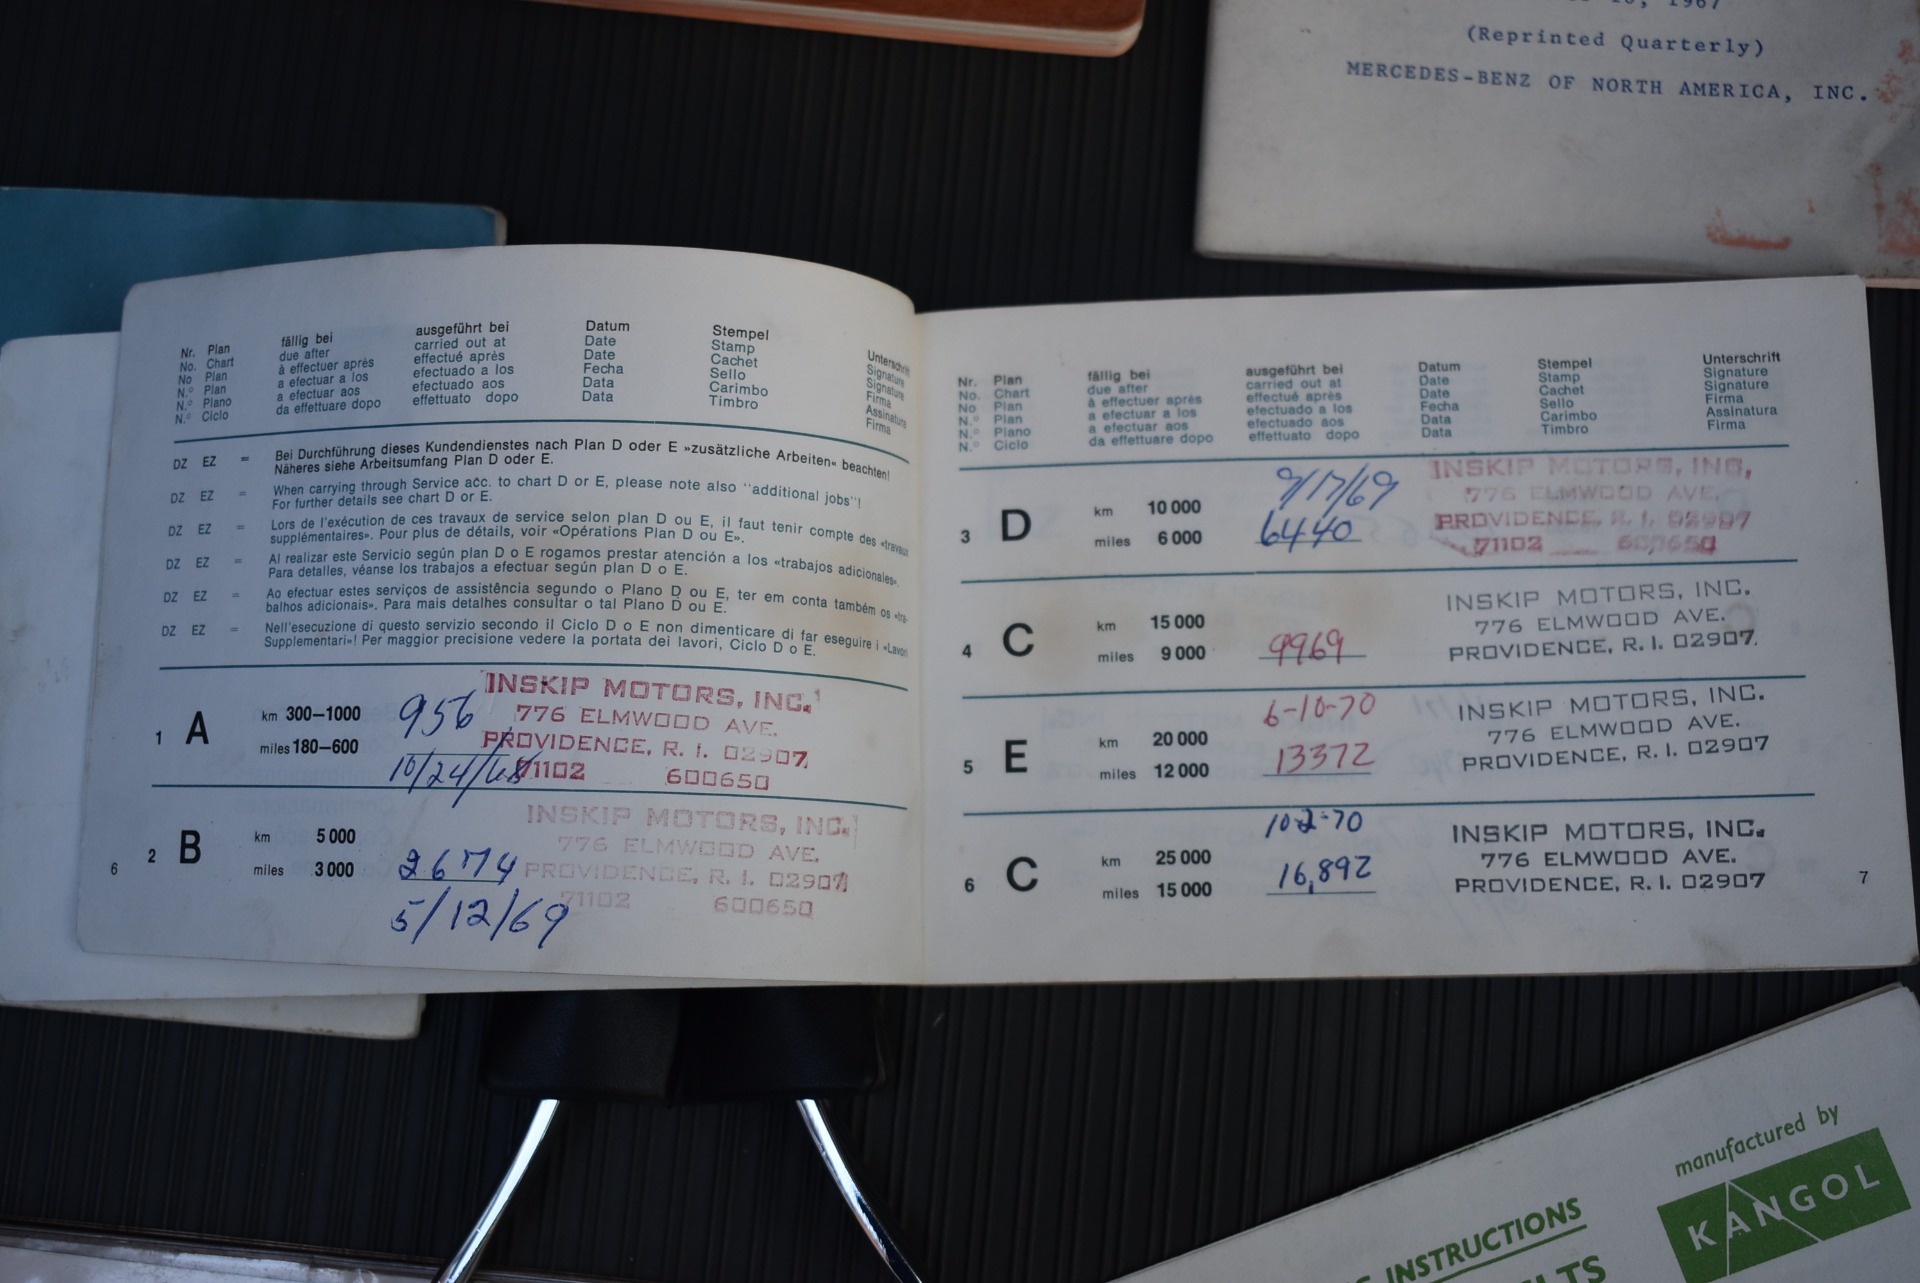 1967
(Reprinted Quarterly)
MERCEDES-BENZ OF NORTH AMERICA, INC.
Nr. Plan fällig bei ausgeführt bei Datum Stempel Unterschrift
No. Chart due after carried out at Date Stamp Signature
No Plan à effectuer après effectué après Date Cachet Signature
N.º Plan a efectuar a los efectuado a los Fecha Sello Firma
N.º Plano a efectuar aos efectuado aos Data Carimbo Assinatura
N.º Ciclo da effettuare dopo effettuato dopo Data Timbro Firma
DZ EZ = Bei Durchführung dieses Kundendienstes nach Plan D oder E »zusätzliche Arbeiten« beachten!
Näheres siehe Arbeitsumfang Plan D oder E.
DZ EZ = When carrying through Service acc. to chart D or E, please note also "additional jobs"!
For further details see chart D or E.
DZ EZ = Lors de l'exécution de ces travaux de service selon plan D ou E, il faut tenir compte des «travaux
supplémentaires». Pour plus de détails, voir «Opérations Plan D ou E».
DZ EZ = Al realizar este Servicio según plan D o E rogamos prestar atención a los «trabajos adicionales».
Para detalles, véanse los trabajos a efectuar según plan D o E.
DZ EZ = Ao efectuar estes serviços de assistência segundo o Plano D ou E, ter em conta também os «tra-
balhos adicionais». Para mais detalhes consultar o tal Plano D ou E.
DZ EZ = Nell'esecuzione di questo servizio secondo il Ciclo D o E non dimenticare di far eseguire i «Lavori
Supplementari»! Per maggior precisione vedere la portata dei lavori, Ciclo D o E.
1 A km 300–1000 miles 180–600
956
10/24/68
INSKIP MOTORS, INC.
776 ELMWOOD AVE.
PROVIDENCE, R. I. 02907
71102 600650
2 B km 5 000 miles 3 000
2674
5/12/69
INSKIP MOTORS, INC.
776 ELMWOOD AVE.
PROVIDENCE, R. I. 02907
71102 600650
6
Nr. Plan fällig bei ausgeführt bei Datum Stempel Unterschrift
No. Chart due after carried out at Date Stamp Signature
No Plan à effectuer après effectué après Date Cachet Signature
N.º Plan a efectuar a los efectuado a los Fecha Sello Firma
N.º Plano a efectuar aos efectuado aos Data Carimbo Assinatura
N.º Ciclo da effettuare dopo effettuato dopo Data Timbro Firma
3 D km 10 000 miles 6 000
9/17/69
6440
INSKIP MOTORS, INC.
776 ELMWOOD AVE.
PROVIDENCE, R. I. 02907
71102 600650
4 C km 15 000 miles 9 000
9969
INSKIP MOTORS, INC.
776 ELMWOOD AVE.
PROVIDENCE, R. I. 02907
5 E km 20 000 miles 12 000
6-10-70
13372
INSKIP MOTORS, INC.
776 ELMWOOD AVE.
PROVIDENCE, R. I. 02907
6 C km 25 000 miles 15 000
10-2-70
16,892
INSKIP MOTORS, INC.
776 ELMWOOD AVE.
PROVIDENCE, R. I. 02907
7
manufactured by
KANGOL
INSTRUCTIONS